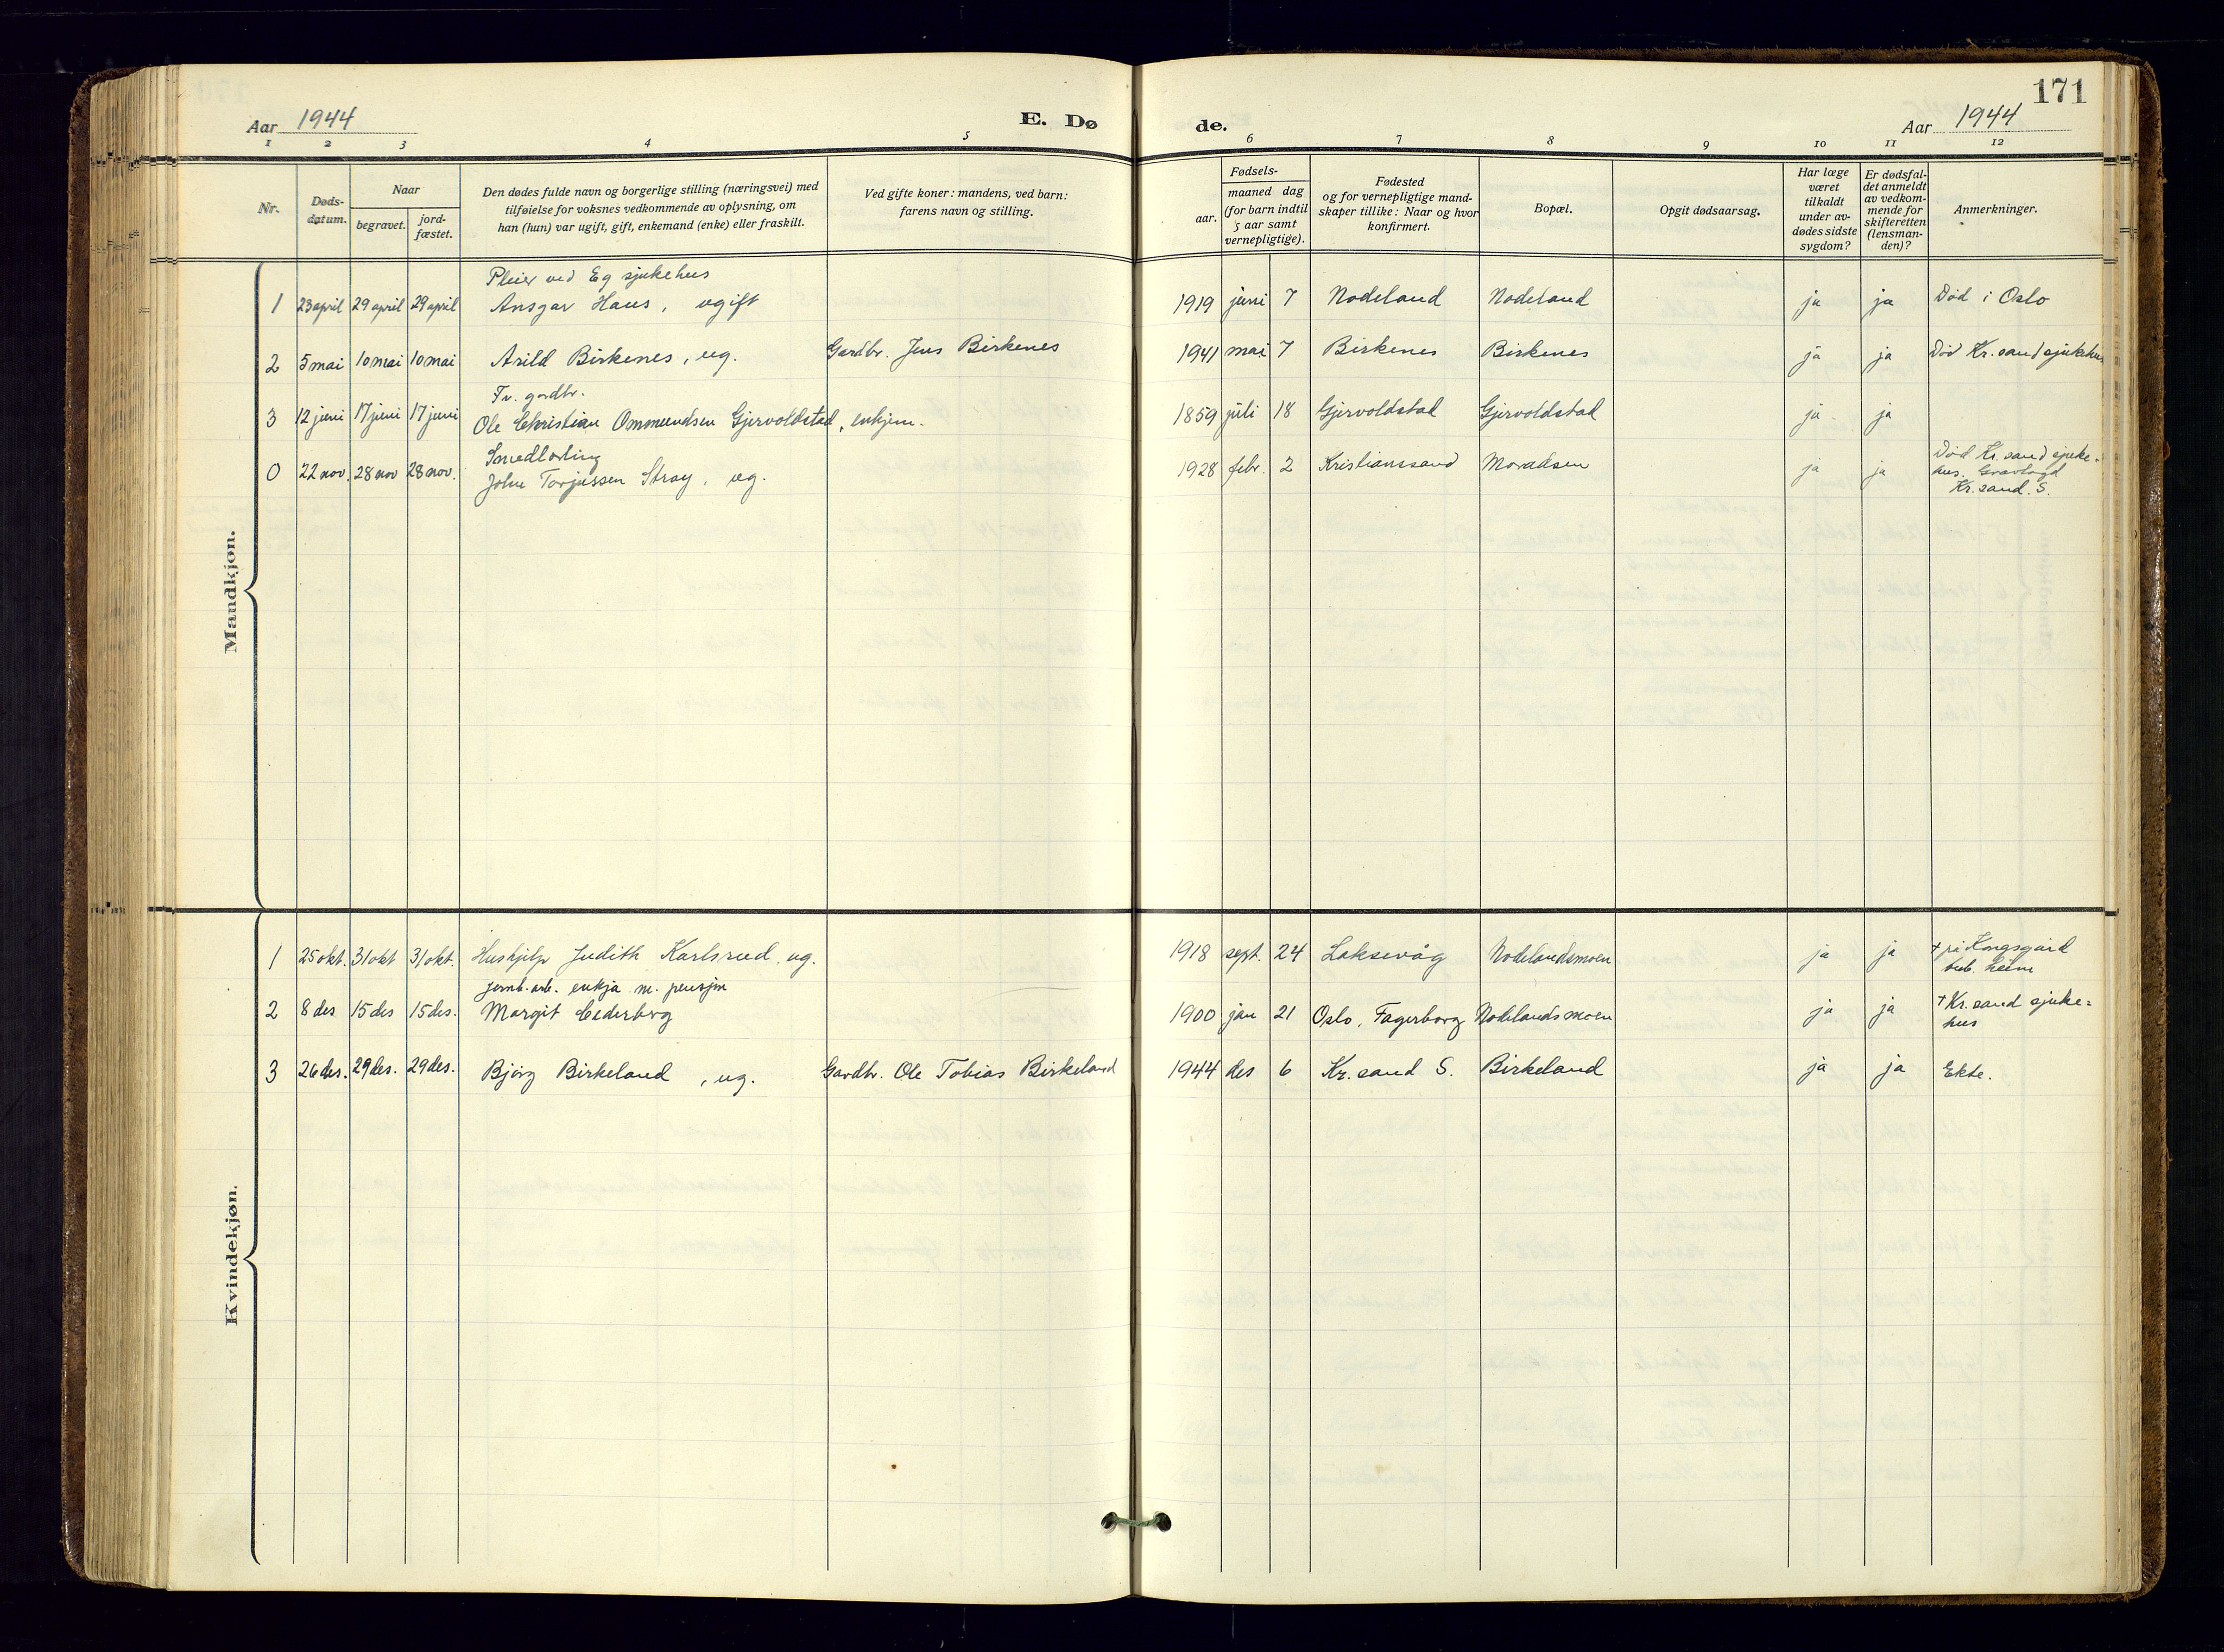 171
Aar 1944
E. Dø de.
Aar 1944
1 2 3 4 5 6 7 8 9 10 11 12
Nr.
Døds-
datum.
Naar
begravet.
jord-
fæstet.
Den dødes fulde navn og borgerlige stilling (næringsvei) med
tilføielse for voksnes vedkommende av oplysning, om
han (hun) var ugift, gift, enkemand (enke) eller fraskilt.
Ved gifte koner: mandens, ved barn:
farens navn og stilling.
Fødsels-
aar.
maaned dag
(for barn indtil
5 aar samt
vernepligtige).
Fødested
og for vernepligtige mand-
skaper tillike: Naar og hvor
konfirmert.
Bopæl.
Opgit dødsaarsag.
Har læge
været
tilkaldt
under av-
dødes sidste
sygdom?
Er dødsfal-
det anmeldt
av vedkom-
mende for
skifteretten
(lensman-
den)?
Anmerkninger.
Mandkjøn.
Pleier ved Eg sjukehus
1 23 april 29 april 29 april Ansgar Haus, ugift 1919 juni 7 Nodeland Nodeland ja ja Død i Oslo
2 5 mai 10 mai 10 mai Arild Birkenes, ug. Gardbr. Jens Birkenes 1941 mai 7 Birkenes Birkenes ja ja Død Kr.sand sjukehus
Fv. gardbr.
3 12 juni 17 juni 17 juni Ole Christian Ommundsen Gjervoldstad, enkjem. 1859 juli 18 Gjervoldstad Gjervoldstad ja ja
Smedlærling
0 22 nov. 28 nov 28 nov. John Torjussen Stray, ug. 1928 febr. 2 Kristianssand Moradsen ja ja Død Kr.sand sjuke-
hus. Gravlagd
Kr.sand. S.
Kvindekjøn.
1 25 okt. 31 okt 31 okt. Hushjelp Judith Karlsrud, ug. 1918 sept. 24 Laksevåg Nodelandsmoen ja ja † på Kongsgård
heim
jernb.arb. enkja m. pensjon
2 8 des 15 des 15 des. Margit Cederberg 1900 jan 21 Oslo, Fagerborg Nodelandsmoen ja ja † Kr.sand sjuke-
hus
3 26 des. 29 des. 29 des. Bjørg Birkeland, ug. Gardbr. Ole Tobias Birkeland 1944 des 6 Kr.sand S. Birkeland ja ja Ekte.